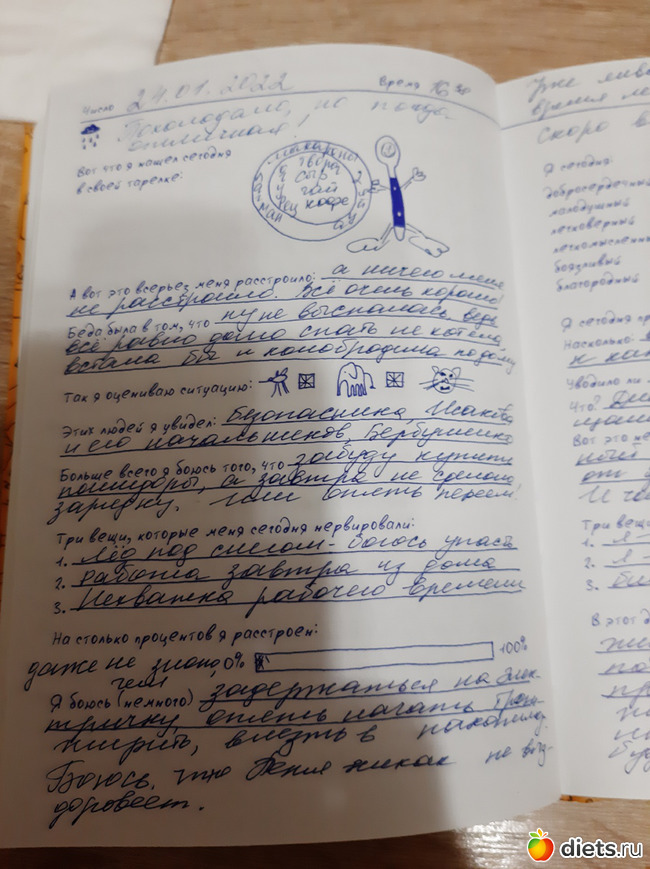 Число 24.01.2022 Время 16 30
Похолодало, но погода
отличная!
Вот что я нашел сегодня
в своей тарелке:
макароны
творог
сыр
чай
кофе
суп
А вот это всерьез меня расстроило: а ничего меня
не расстроило. Всё очень хорошо
Беда была в том, что ну не выспалась, ведь
всё равно долго спать не хотела,
встала бы и колобродила по дому
Так я оцениваю ситуацию:
Этих людей я увидел: Безопасника, Исакова
и его начальников, Бербушенко
Больше всего я боюсь того, что забуду купить
помидоры, а завтра не сделаю
зарядку. Или опять переем!
Три вещи, которые меня сегодня нервировали:
1. Лёд под снегом - боюсь упасть
2. Работа завтра из дома
3. Нехватка рабочего времени
На столько процентов я расстроен:
даже не знаю, 0% 100%
чем
Я боюсь (немного) задержаться на элек-
тричку, опять начать тран-
жирить, влезть в
Боюсь, что Беня никак не выз-
доровеет.
Уже
время
скоро в
Я сегодня:
добросердечный
малодушный
легковерный
легкомысленный
боязливый
благородный
Я сегодня
Насколько:
Уводило ли
Что?
Вот это не
от
И
Три вещи
1. Я
2. Я
3.
В этот д
diets.ru